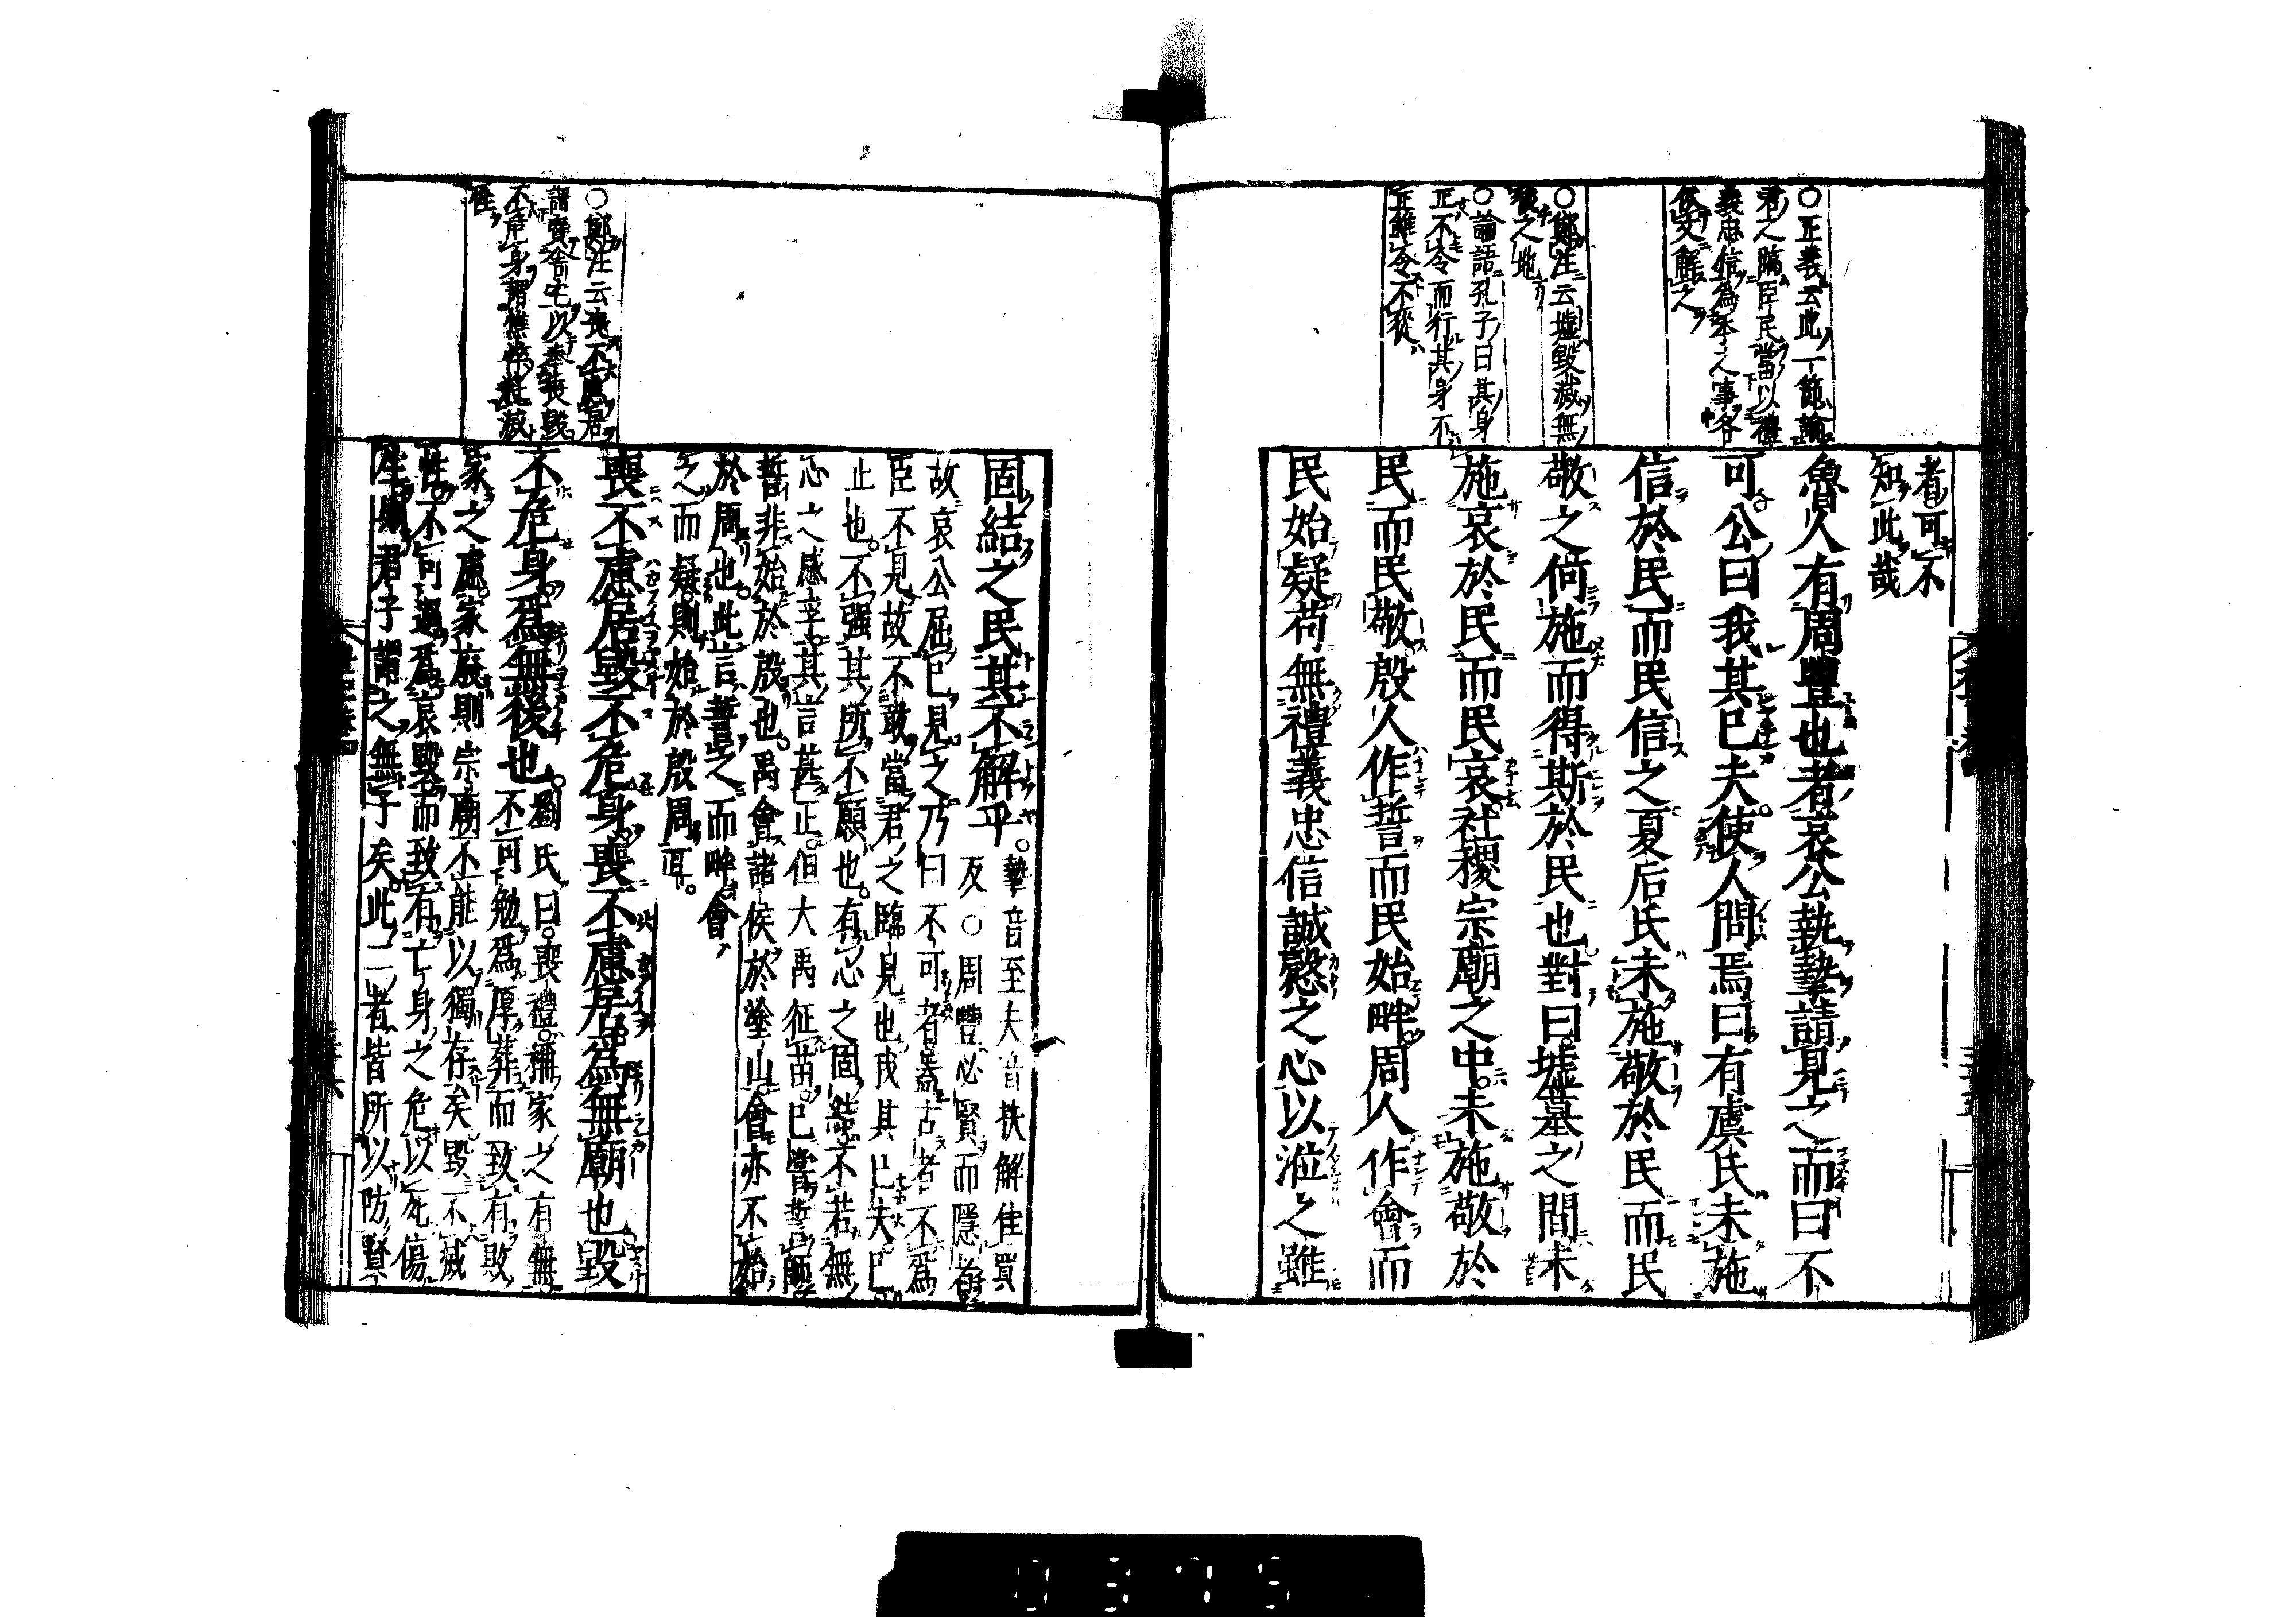 ○正義云此一節論
君之臨臣民當以禮
義忠信爲本之事各
依文解之
○鄭注云墟毀滅無
後之地
○論語孔子曰其身
正不令而行其身不
正雖令不從
者可不
知此哉
魯人有周豐也者哀公執摯請見之而曰不
可公曰我其已夫使人問焉曰有虞氏未施
信於民而民信之夏后氏未施敬於民而民
敬之何施而得斯於民也對曰墟墓之間未
施哀於民而民哀社稷宗廟之中未施敬於
民而民敬殷人作誓而民始畔周人作會而
民始疑苟無禮義忠信誠慤之心以涖之雖
○鄭注云喪不慮居
謂賣舍宅以奉喪毀
不危身謂憔悴將滅
性
固結之民其不解乎
摯音至夫音扶解佳買
反○周豐必賢而隱者
故哀公屈己見之乃曰不可者蓋古者不爲
臣不見故不敢當君之臨見也我其已夫已
止也不强其所不願也有心之固結不若無
心之感孚其言甚正但大禹征苗已嘗誓師
誓非始於殷也禹會諸侯於塗山會亦不始
於周也此言誓之而畔會
之而疑則始於殷周耳
喪不慮居毀不危身喪不慮居爲無廟也毀
不危身爲無後也
劉氏曰喪禮稱家之有無
不可勉爲厚葬而致有敗
家之慮家廢則宗廟不能以獨存矣毀不滅
性不可過爲哀毀而致有亡身之危以死傷
生則君子謂之無子矣此二者皆所以防賢